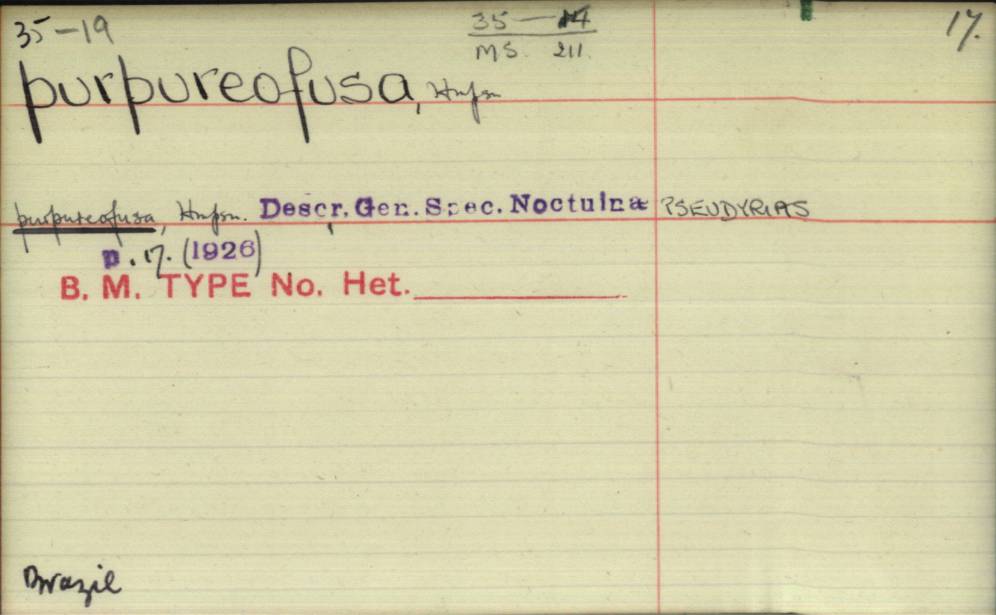 35-19
35-14
MS. 211.
17.
purpureofusa, Hmpsn
purpureofusa, Hmpsn. Descr. Gen. Spec. Noctuinæ PSEUDYRIAS
p. 17. (1926)
B. M. TYPE No. Het.
Brazil